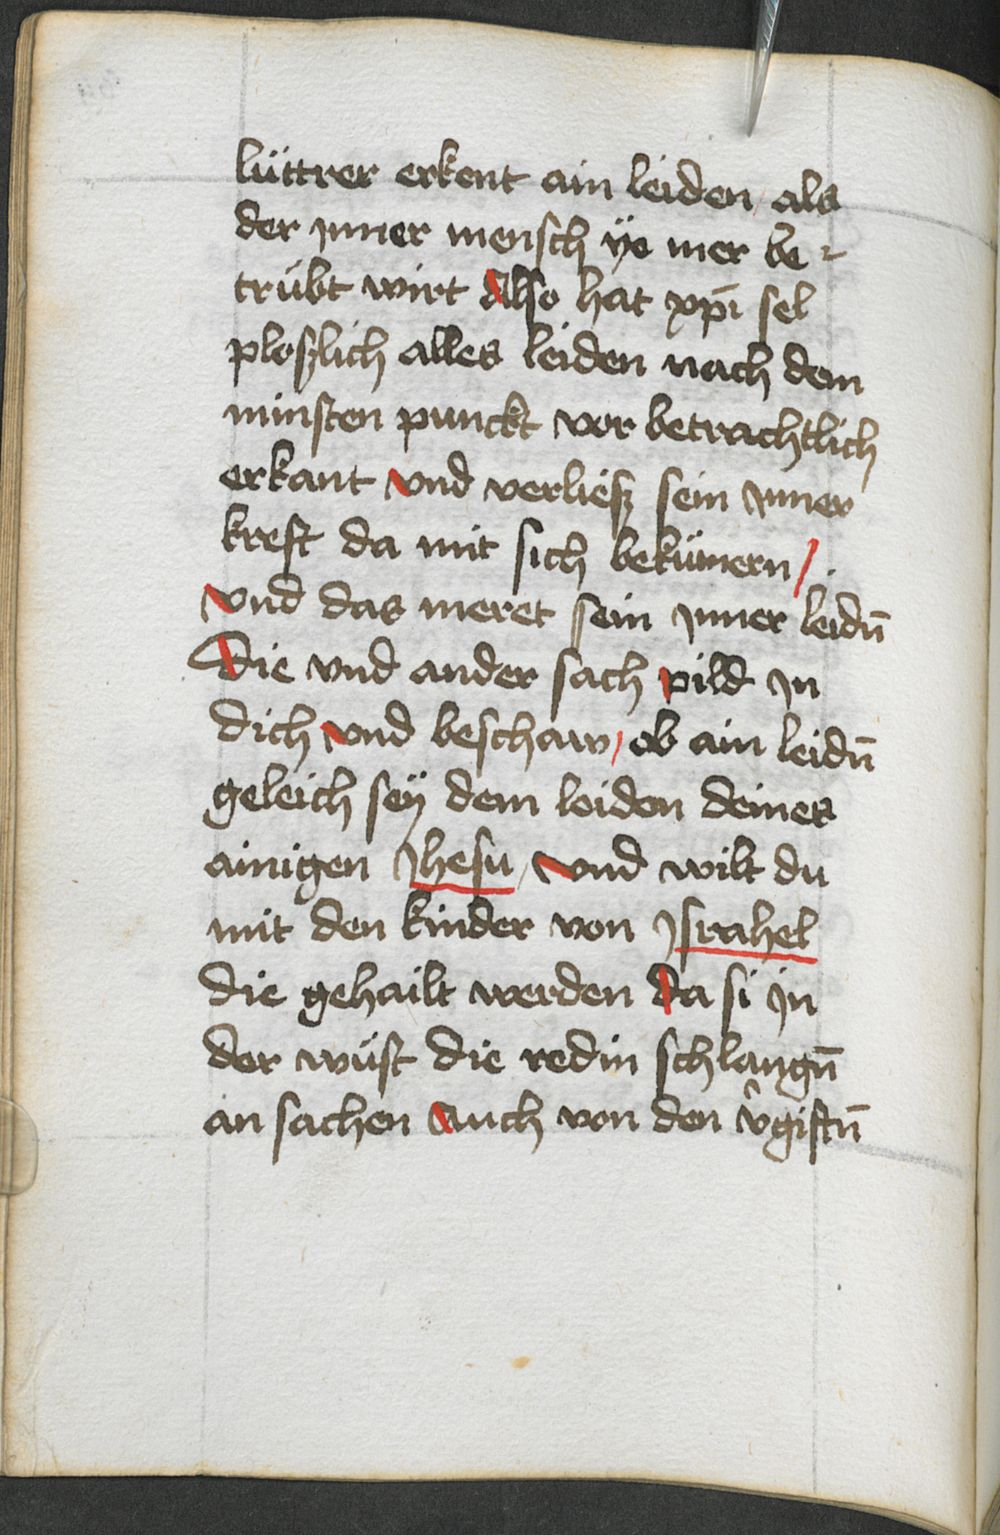 lüttrer erkent ain leiden / als
der jnner mensch ÿe mer be-
trübt wirt Also hat xpī sel
ploßlich alles leiden nach dem
minsten punckt vor betrachtlich
erkant vnd verließ sein jnner
kreft da mit sich bekümern /
vnd das meret sein jnner leidn̄
Die vnd ander sach pild jn
dich vnd beschaw / ob ain leidn̄
geleich seÿ dem leiden deines
ainigen Jhesu / vnd wilt du
mit den kinder von Jsrahel
die gehailt werden da si jn
der wüst die redin schlangn̄
an sachen Auch von den v̂giftn̄